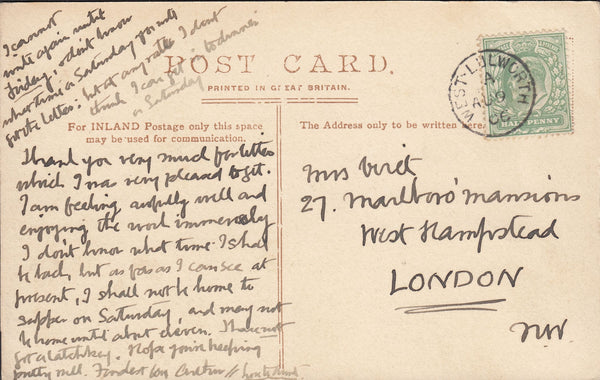 POST CARD.
PRINTED IN GREAT BRITAIN.
For INLAND Postage only this space
may be used for communication.
The Address only to be written here
WEST-LULWORTH
A
AU 9
HALFPENNY
Thank you very much for letter
which I was very pleased to get.
I am feeling awfully well and
enjoying the work immensely
I don't know what time I shall
be back, but as far as I can see at
present, I shall not be home to
supper on Saturday, and may not
be home until about eleven. I have not
got a latchkey. Hope you're keeping
pretty well. Fondest love
I cannot
write again until
Friday; & don't know
what time on Saturday you
got the letter: but at any rate I don't
think I can get to dinner
on Saturday
Mrs Viret
27. Marlboro' Mansions
West Hampstead
LONDON
N.W.